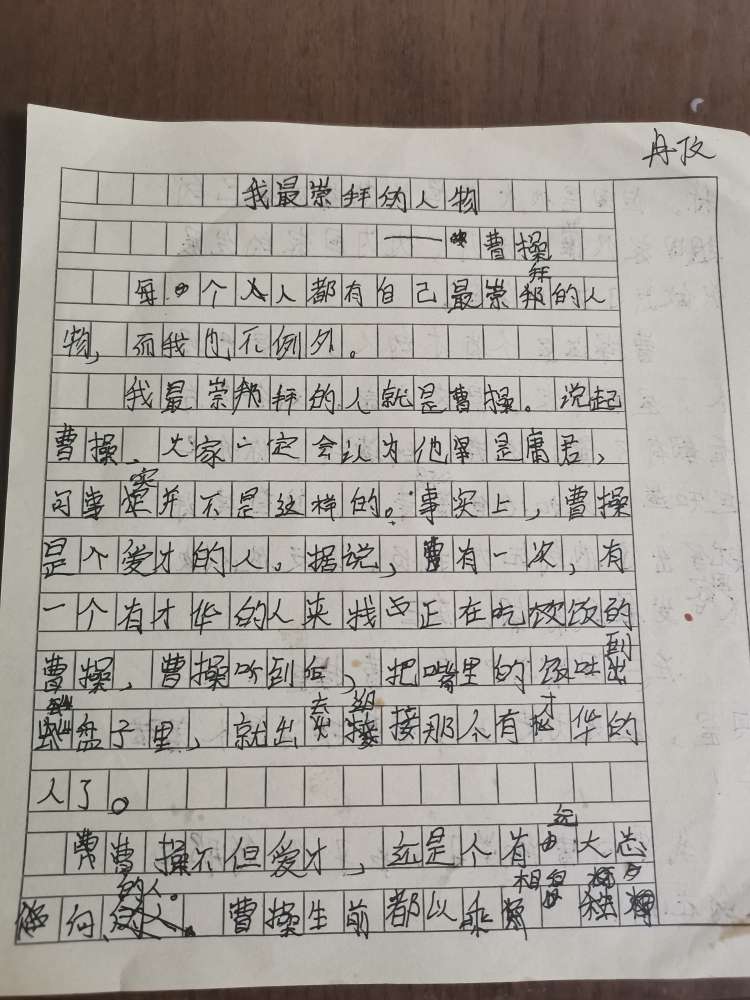 我最崇拜的人物
——曹操
每个人都有自己最崇拜的人
物，而我也不例外。
我最崇拜的人就是曹操。说起
曹操、大家一定会认为他是庸君，
可事实并不是这样的。事实上，曹操
是个爱才的人。据说，有一次，有
一个有才华的人来找正在吃饭的
曹操，曹操听到后，把嘴里的饭吐到
盘子里，就出去迎接那个有才华的
人了。
曹操不但爱才，还是个有远大志
向的人。曹操生前都以丞相自